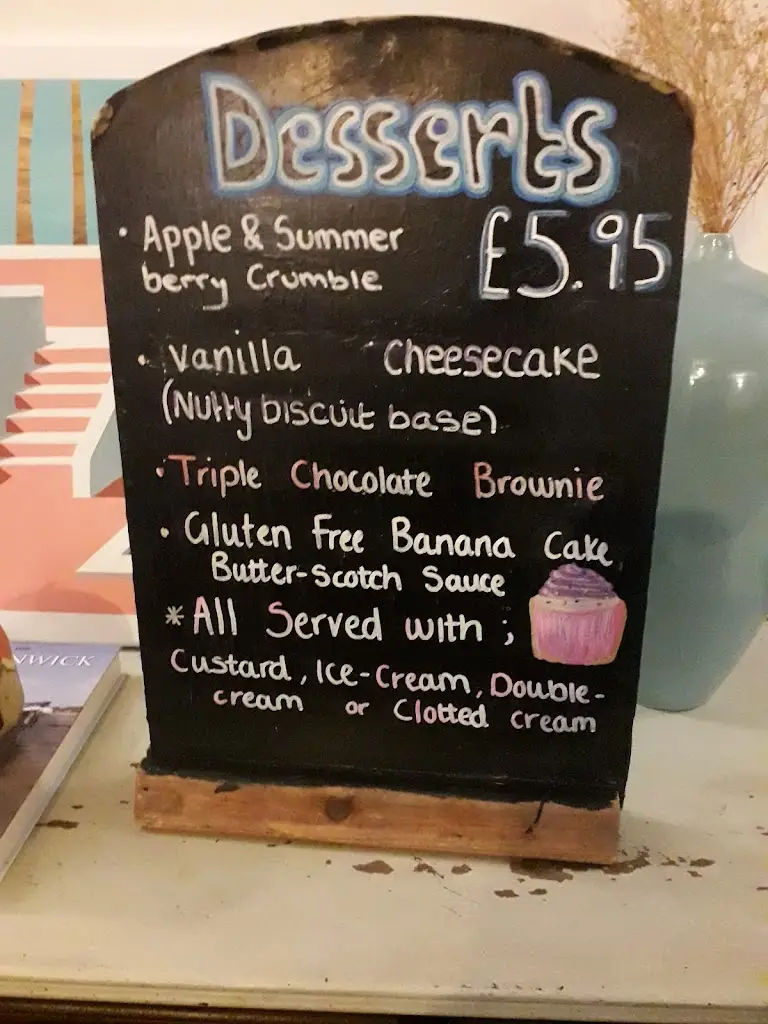 Desserts
• Apple & Summer £5.95
berry Crumble
• Vanilla Cheesecake
(Nutty biscuit base)
• Triple Chocolate Brownie
• Gluten Free Banana Cake
Butter-Scotch Sauce
* All Served with ;
Custard, Ice-Cream, Double-
cream or Clotted cream
NWICK